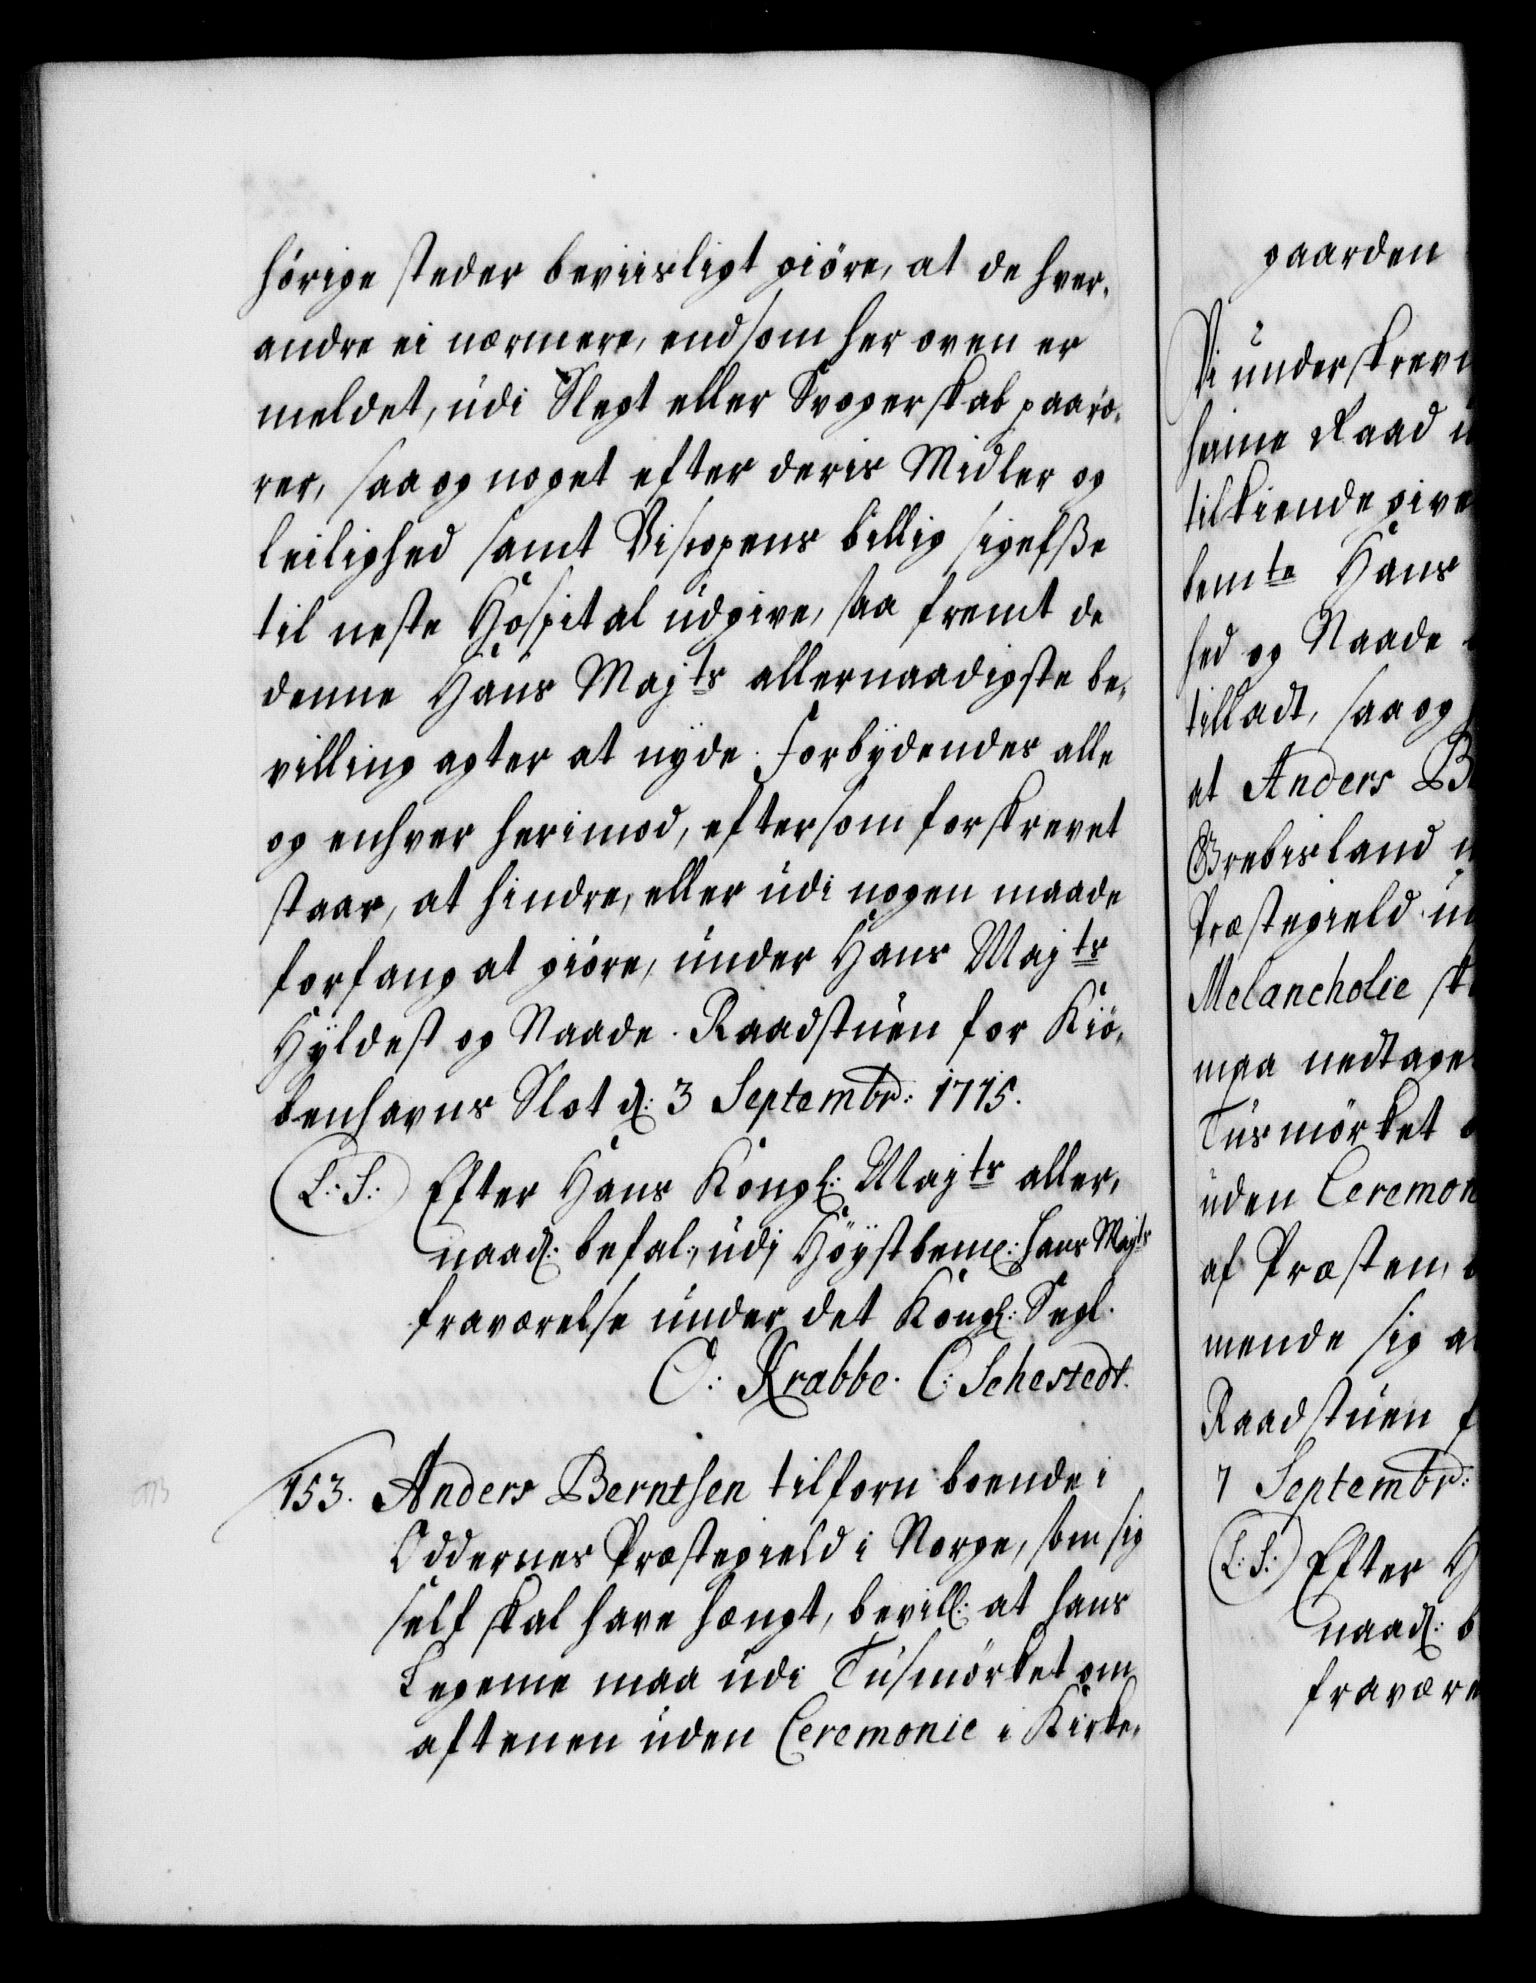 hörige steder beviisligt giöre, at de hver,
andre ei nærmere, end som her oven er
meldet, udi Slegt eller Svogerskab paarö,
rer, saa og noget efter deris Midler og
leilighed samt Bispens billig sigelße
til neste Hospital udgive, saa fremt de
denne Hans Majts allernaadigste be,
villing agter at nyde. Forbydendes alle
og enhver herimod, eftersom forskrevet
staar, at hindre, eller udi nogen maade
forfang at giöre, under Hans Majts
Hyldest og Naade. Raadstuen for Kiö,
benhavns Slot d: 3 Septembr: 1715.
(L: S:) Efter Hans Kongl: Majts aller,
naad: befal:, udj Höystbem: Hans Majts
fraværelse under det Kongl: Segl.
O: Krabbe. C: Schestedt.
153. Anders Berntsen tilforn boende i
Oddernes Præstegield i Norge, som sig
self skal have hængt, bevill: at hans
Legeme maa udi Tusmörket om
aftenen uden Ceremonie i Kirke,
gaarden
Vi underskrevn
heime Raad u
tilkiende give
bemte Hans
hed og Naade
tilladt, saa og
at Anders B
Grebisland
Præstegield u
Melancholie sk
maa nedtage
Tusmörket
uden Ceremon
af Præsten,
mende sig a
Raadstuen f
7 Septembr:
(L: S:) Efter H
naad: b
fravære